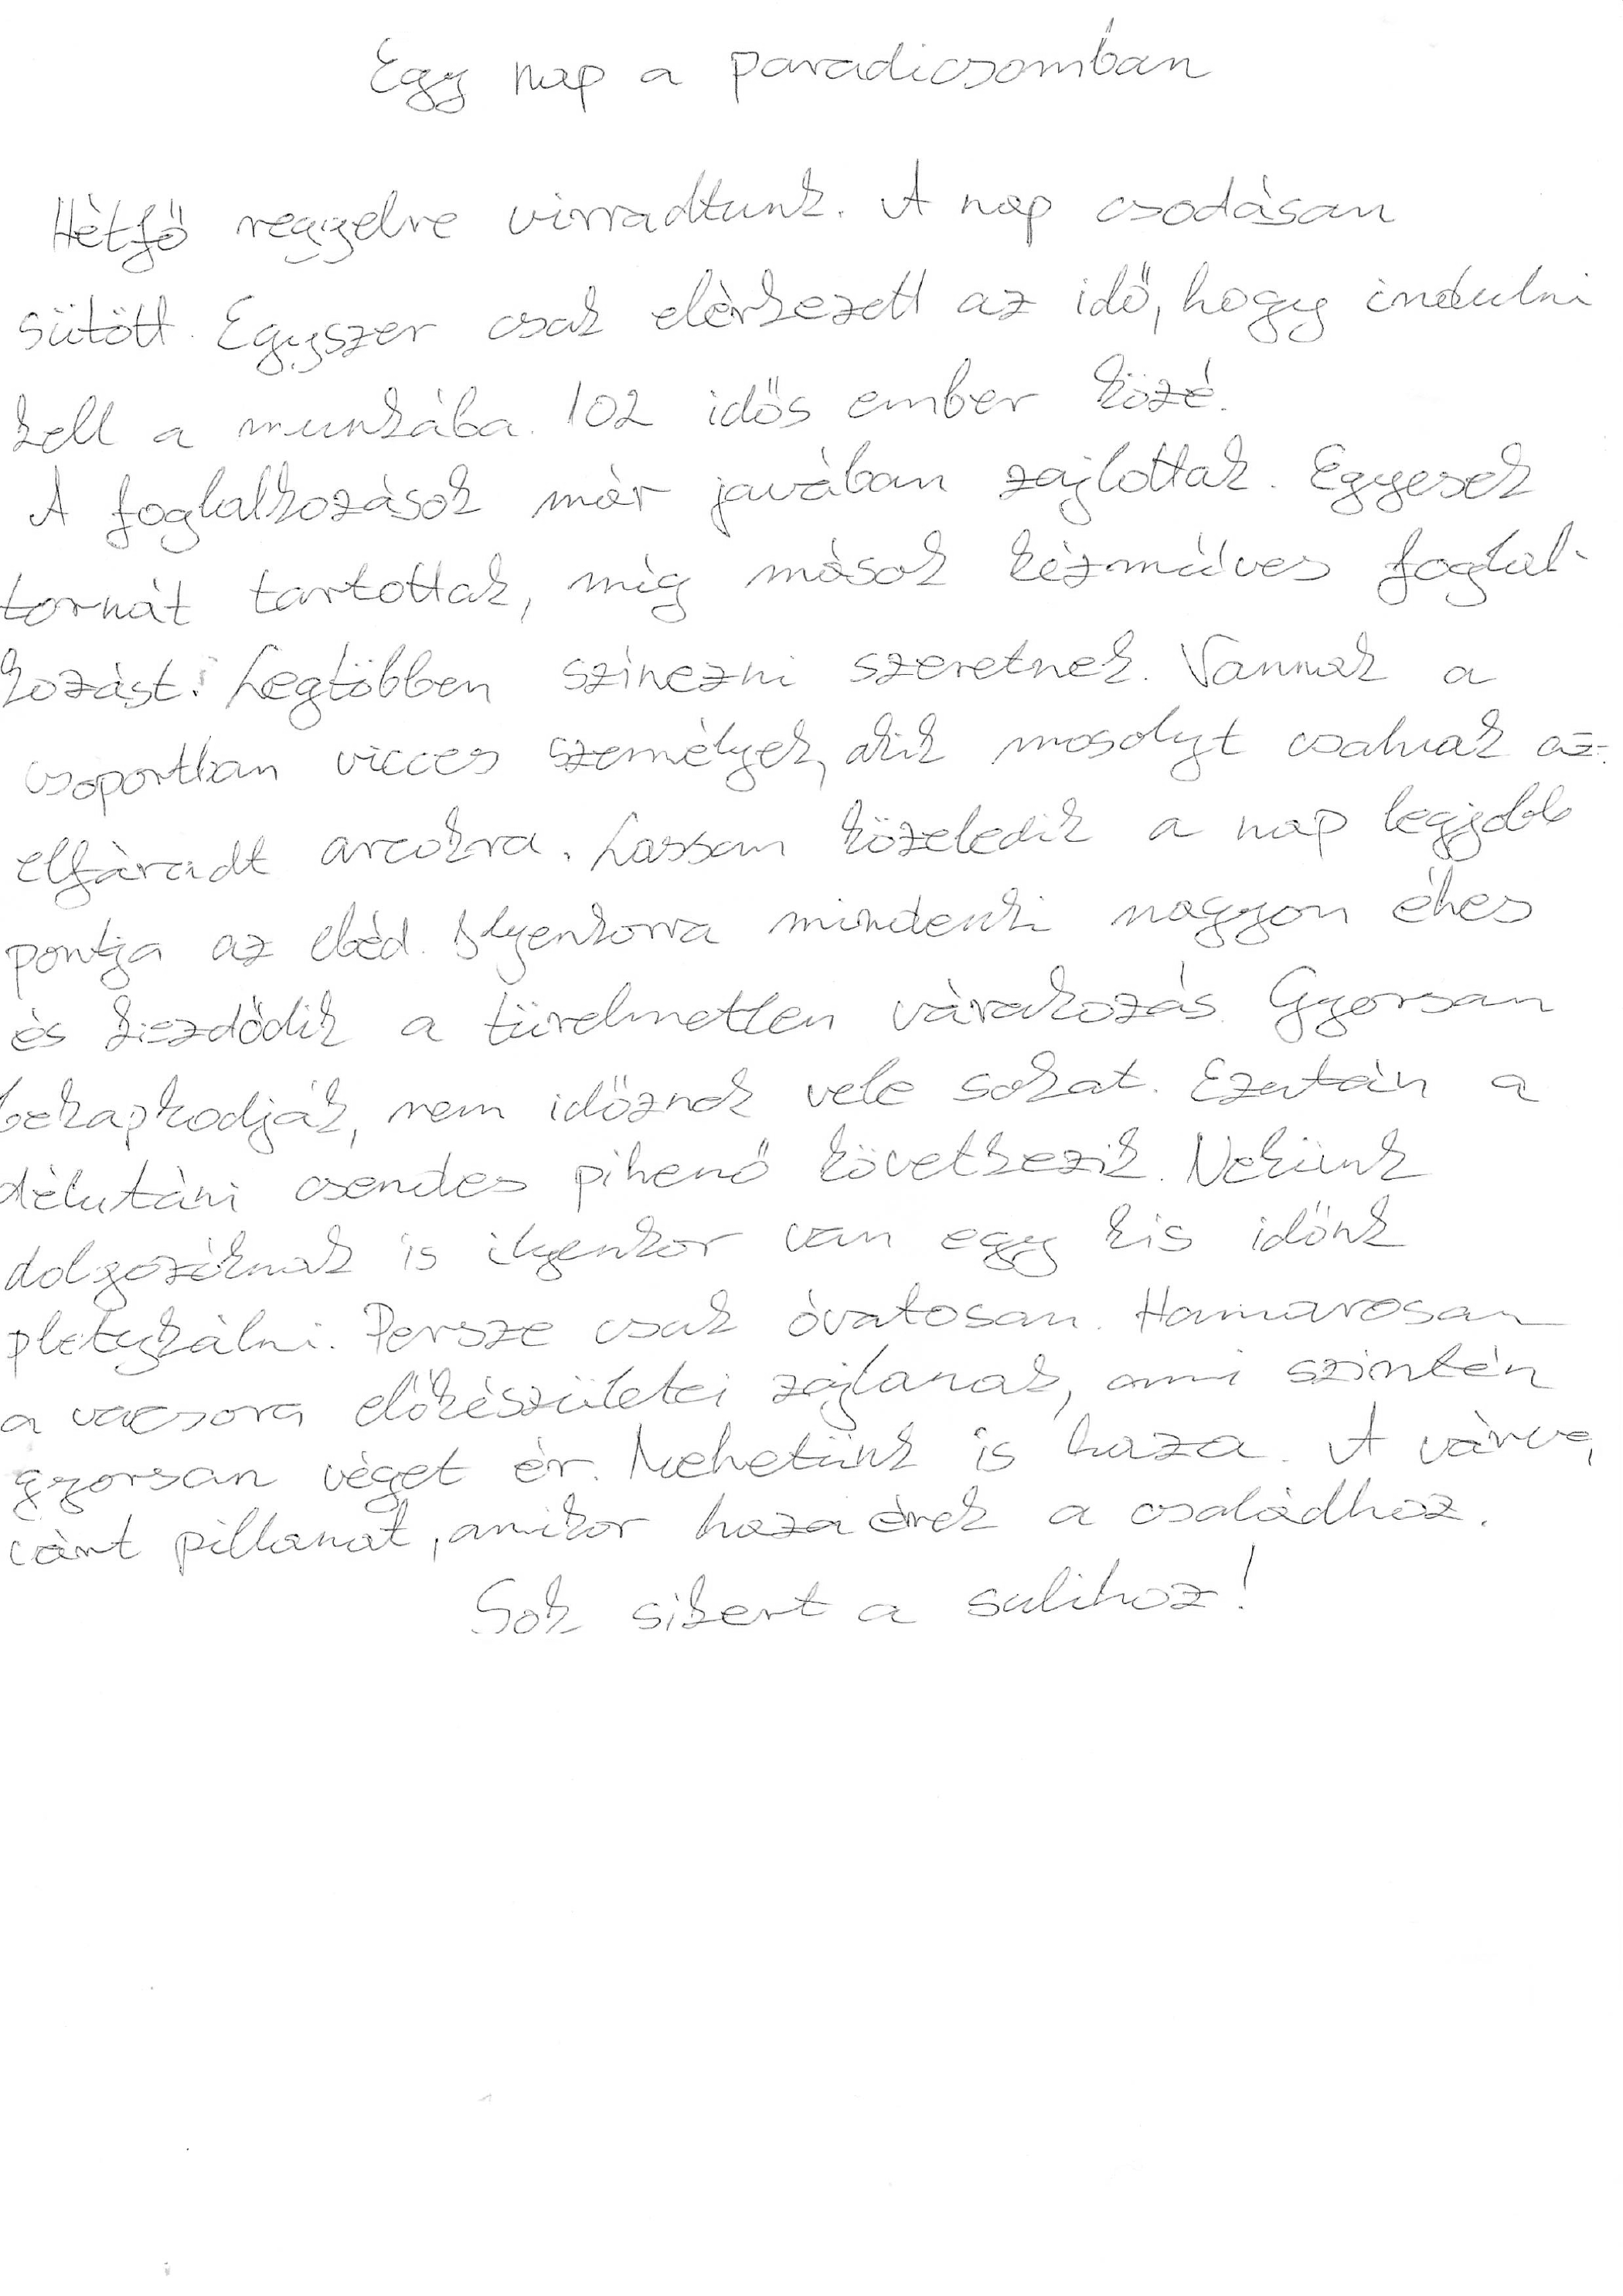 Egy nap a paradicsomban
Hétfő reggelre virradtunk. A nap csodásan
sütött. Egyszer csak elérkezett az idő, hogy indulni
kell a munkába. 102 idős ember közé.
A foglalkozások már javában zajlottak. Egyesek
tornát tartottak, míg mások kézműves foglal-
kozást. Legtöbben színezni szeretnek. Vannak a
csoportban vicces személyek, akik mosolyt csalnak az
elfáradt arcokra. Lassan közeledik a nap legjobb
pontja az ebéd. Ilyenkorra mindenki nagyon éhes
és kezdődik a türelmetlen várakozás. Gyorsan
bekapkodják, nem időznek vele sokat. Ezután a
délutáni csendes pihenő következik. Nekünk
dolgozóknak is ilyenkor van egy kis időnk
pletykálni. Persze csak óvatosan. Hamarosan
a vacsora előkészületei zajlanak, ami szintén
gyorsan véget ér. Mehetünk is haza. A várva,
várt pillanat, amikor hazaérek a családhoz.
Sok sikert a sulihoz!